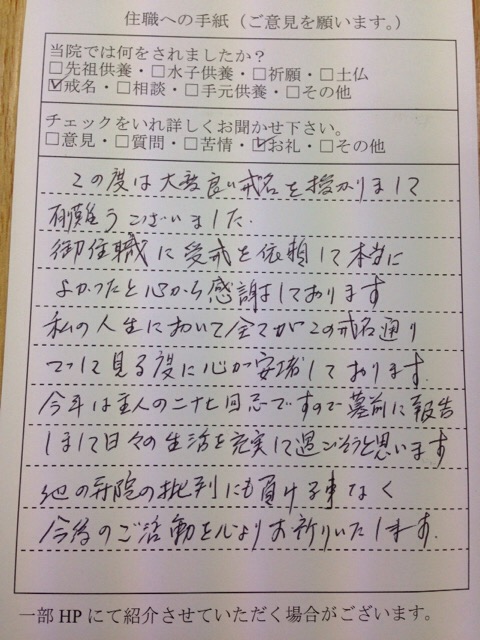 住職への手紙（ご意見を願います。）
当院では何をされましたか？
□先祖供養・□水子供養・□祈願・□土仏
☑戒名・□相談・□手元供養・□その他
チェックをいれ詳しくお聞かせ下さい。
□意見・□質問・□苦情・☑お礼・□その他
この度は大変良い戒名を授かりまして
有難うございました.
御住職に受戒を依頼して本当に
よかったと心から感謝しております
私の人生において全てがこの戒名通り
でして見る度に心が安堵しております.
今年は主人の二十七回忌ですので墓前に報告
しまして日々の生活を充実して過ごそうと思います
他の寺院の批判にも負ける事なく
今後のご活動を心よりお祈りいたします.
一部HPにて紹介させていただく場合がございます。